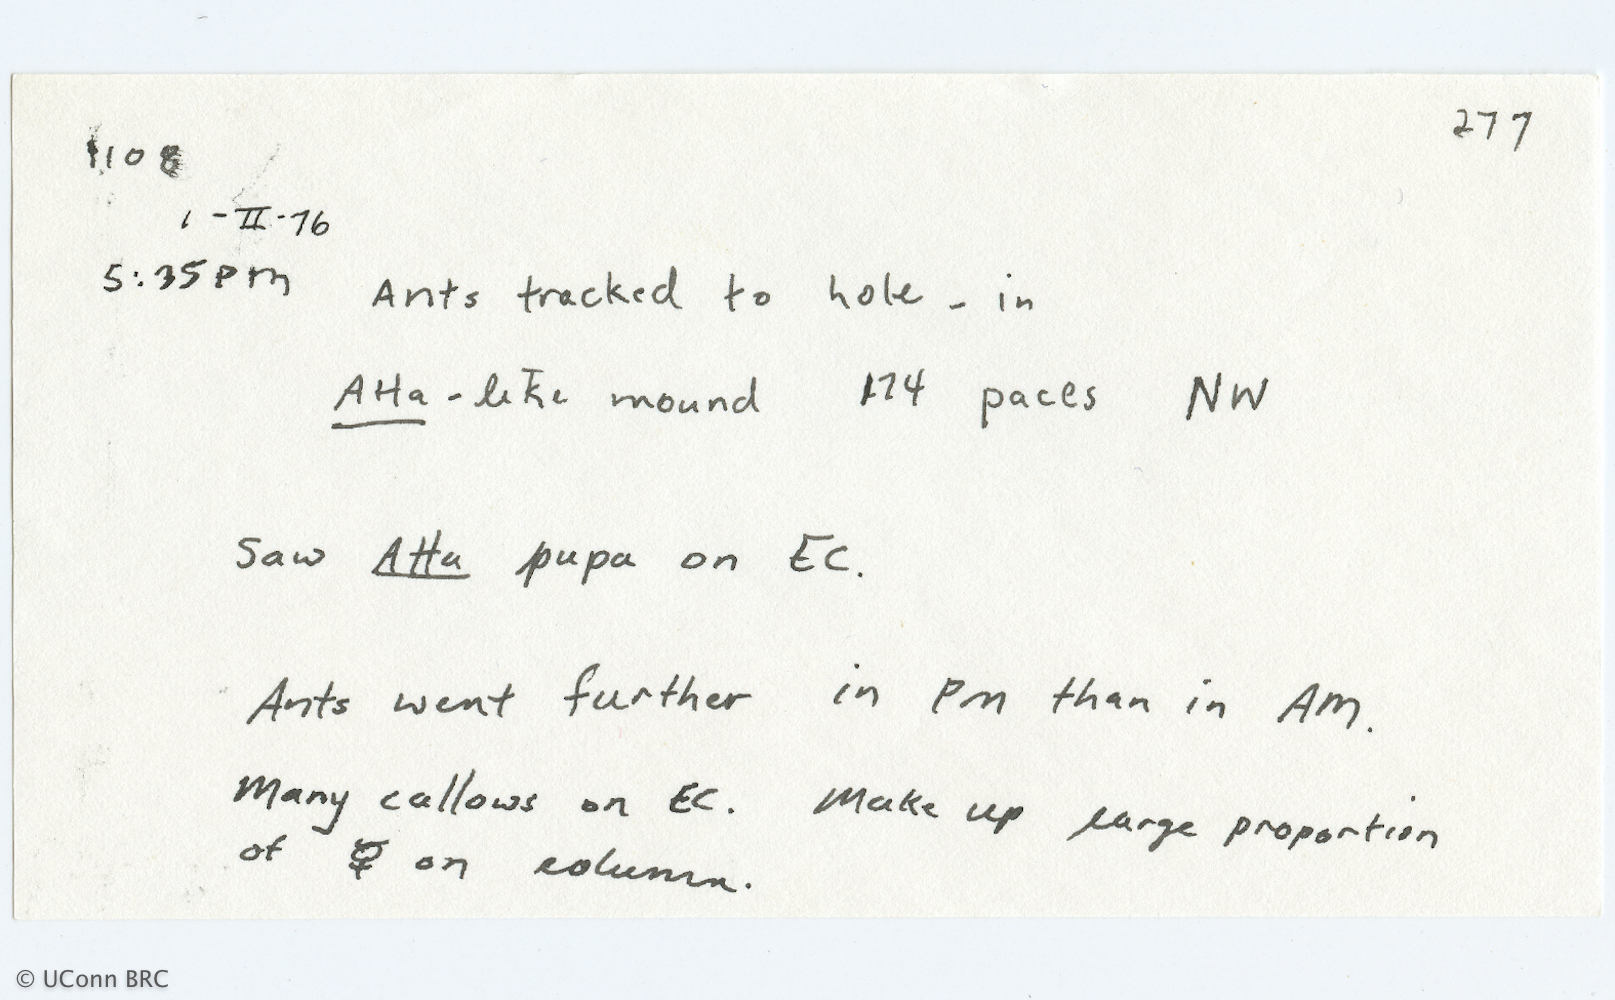 277
1108
1-II-76
5:35PM Ants tracked to hole - in
Atta-like mound 174 paces NW
Saw Atta pupa on EC.
Ants went further in PM than in AM.
Many callows on EC. Make up large proportion
of ☿ on column.
© UConn BRC